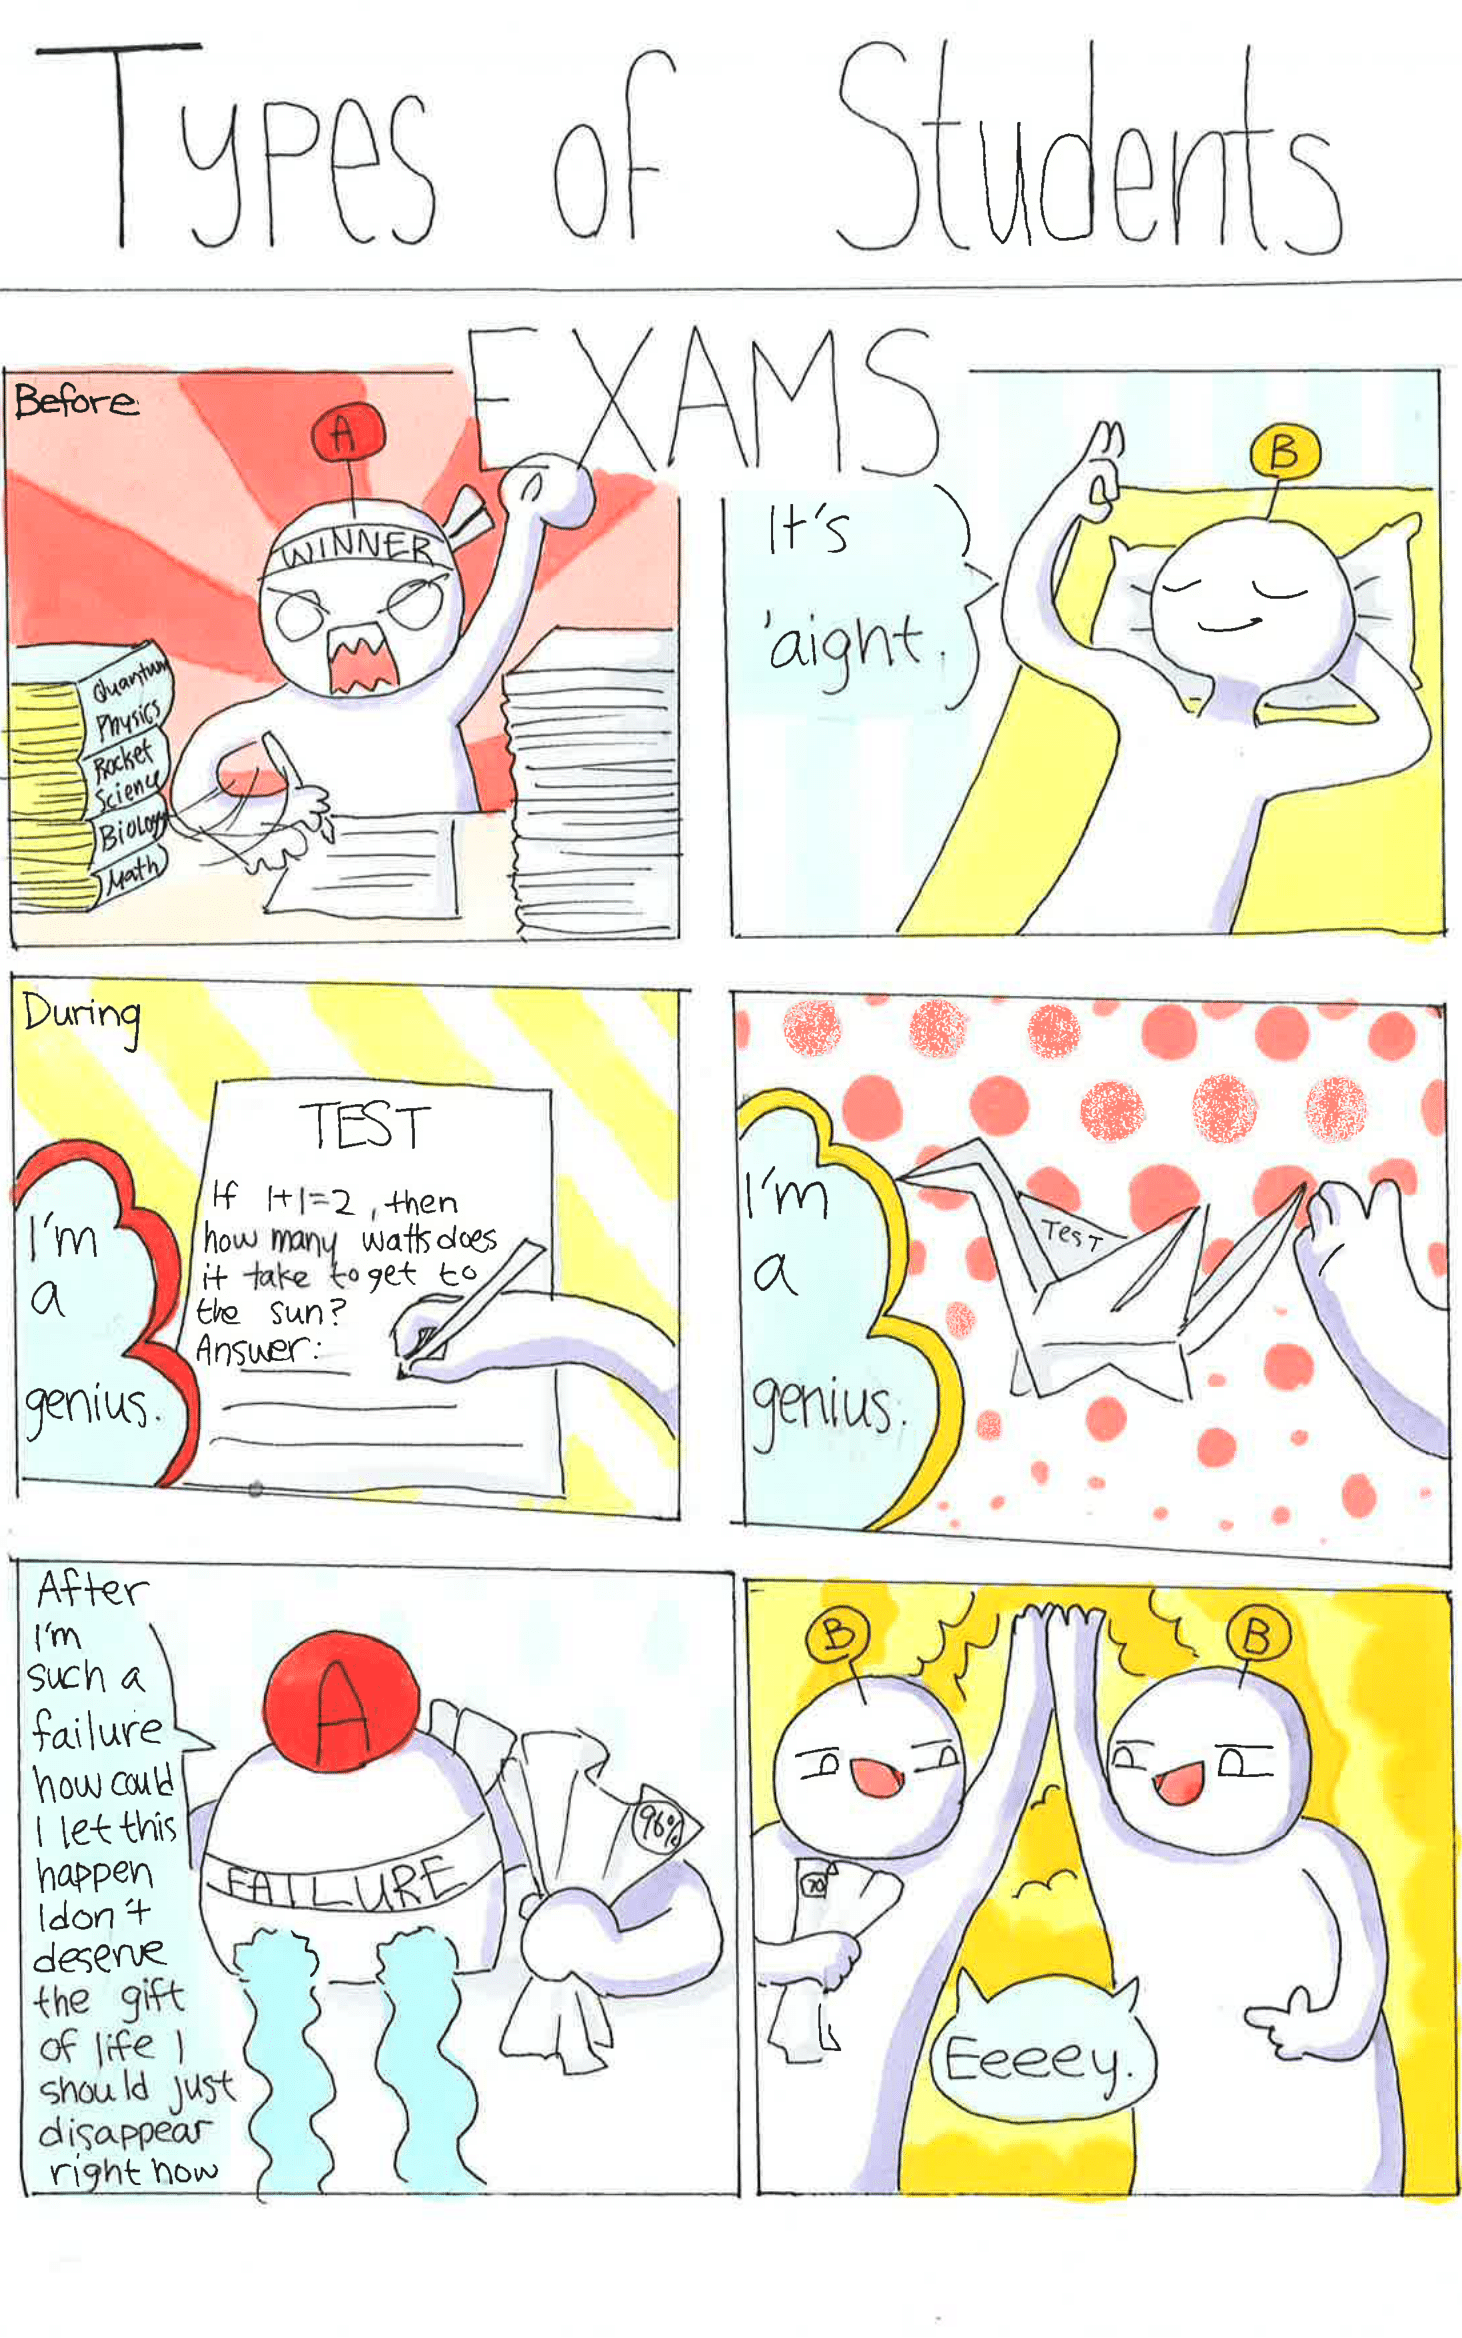 Types of Students
EXAMS
Before
A
WINNER
Quantum
Physics
Rocket
Science
Biology
Math
It's
'aight.
B
During
TEST
If 1+1=2, then
how many watts does
it take to get to
the sun?
Answer:
I'm
a
genius.
I'm
a
genius.
TEST
After
I'm
such a
failure
how could
I let this
happen
I don't
deserve
the gift
of life I
should just
disappear
right now
A
FAILURE
96%
B
B
70
Eeeey.